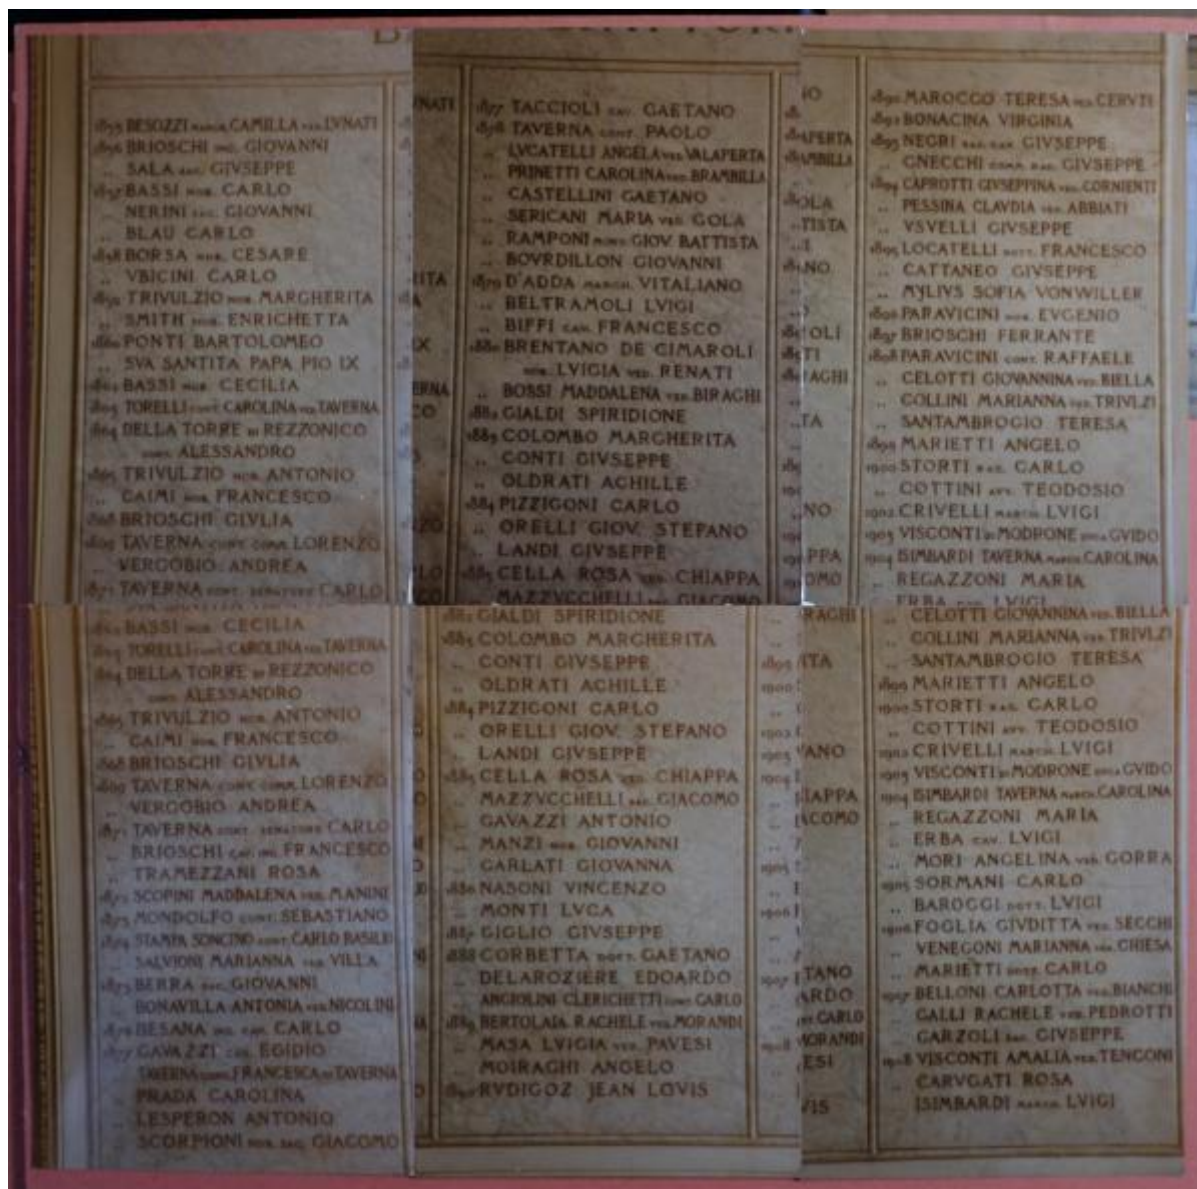 1855 BESOZZI MARCH. CAMILLA VED. LVNATI
1856 BRIOSCHI ING. GIOVANNI
„ SALA RAG. GIVSEPPE
1857 BASSI NOB. CARLO
NERINI SAC. GIOVANNI
„ BLAU CARLO
1858 BORSA NOB. CESARE
„ VBICINI CARLO
1859 TRIVULZIO NOB. MARGHERITA
„ SMITH NOB. ENRICHETTA
1860 PONTI BARTOLOMEO
SVA SANTITA PAPA PIO IX
BASSI NOB. CECILIA
TORELLI CONT. CAROLINA VED. TAVERNA
1864 DELLA TORRE DI REZZONICO
ALESSANDRO
1865 TRIVULZIO NOB. ANTONIO
„ CAIMI NOB. FRANCESCO
1868 BRIOSCHI GIVLIA
1869 TAVERNA CONT. COMM. LORENZO
VERGOBIO ANDREA
1871 TAVERNA CONT. SENATORE CARLO
1877 TACCIOLI CAV. GAETANO
1878 TAVERNA CONT. PAOLO
„ LVCATELLI ANGELA VED. VALAPERTA
„ PRINETTI CAROLINA VED. BRAMBILLA
„ CASTELLINI GAETANO
„ SERICANI MARIA VED. GOLA
„ RAMPONI MONS. GIOV. BATTISTA
„ BOVRDILLON GIOVANNI
1879 D'ADDA MARCH. VITALIANO
„ BELTRAMOLI LVIGI
„ BIFFI CAV. FRANCESCO
1880 BRENTANO DE CIMAROLI
NOB. LVIGIA VED. RENATI
„ BOSSI MADDALENA VED. BIRAGHI
1882 GIALDI SPIRIDIONE
1883 COLOMBO MARGHERITA
„ CONTI GIVSEPPE
„ OLDRATI ACHILLE
1884 PIZZIGONI CARLO
„ ORELLI GIOV. STEFANO
„ LANDI GIVSEPPE
1885 CELLA ROSA VED. CHIAPPA
MAZZVCCHELLI RAG. GIACOMO
1890 MAROCCO TERESA VED. CERVTI
1892 BONACINA VIRGINIA
1893 NEGRI RAG. CAV. GIVSEPPE
„ GNECCHI COMM. RAG. GIVSEPPE
1894 CAPROTTI GIVSEPPINA VED. CORNIENTI
„ PESSINA CLAVDIA VED. ABBIATI
„ VSVELLI GIVSEPPE
1895 LOCATELLI DOTT. FRANCESCO
„ CATTANEO GIVSEPPE
„ MYLIVS SOFIA VONWILLER
1896 PARAVICINI NOB. EVGENIO
1897 BRIOSCHI FERRANTE
1898 PARAVICINI CONT. RAFFAELE
„ CELOTTI GIOVANNINA VED. BIELLA
„ COLLINI MARIANNA VED. TRIVLZI
„ SANTAMBROGIO TERESA
1899 MARIETTI ANGELO
1900 STORTI RAG. CARLO
„ COTTINI AVV. TEODOSIO
1902 CRIVELLI MARCH. LVIGI
1903 VISCONTI DI MODRONE DUCA GVIDO
1904 ISIMBARDI TAVERNA MARCH. CAROLINA
„ REGAZZONI MARIA
ERBA CAV. LVIGI
BASSI NOB. CECILIA
TORELLI CONT. CAROLINA VED. TAVERNA
1864 DELLA TORRE DI REZZONICO
ALESSANDRO
1865 TRIVULZIO NOB. ANTONIO
„ CAIMI NOB. FRANCESCO
1868 BRIOSCHI GIVLIA
1869 TAVERNA CONT. COMM. LORENZO
„ VERGOBIO ANDREA
1871 TAVERNA CONT. SENATORE CARLO
„ BRIOSCHI CAV. ING. FRANCESCO
„ TRAMEZZANI ROSA
1872 SCOPINI MADDALENA VED. MANINI
1873 MONDOLFO CONT. SEBASTIANO
1874 STAMPA SONCINO CONT. CARLO BASILIO
„ SALVIONI MARIANNA VED. VILLA
1875 BERRA SAC. GIOVANNI
BONAVILLA ANTONIA VED. NICOLINI
1876 BESANA ING. CAV. CARLO
1877 GAVAZZI CAV. EGIDIO
TAVERNA CONT. FRANCESCA IN TAVERNA
„ PRADA CAROLINA
„ LESPERON ANTONIO
„ SCORPIONI NOB. SAC. GIACOMO
1882 GIALDI SPIRIDIONE
1883 COLOMBO MARGHERITA
„ CONTI GIVSEPPE
„ OLDRATI ACHILLE
1884 PIZZIGONI CARLO
„ ORELLI GIOV. STEFANO
„ LANDI GIVSEPPE
1885 CELLA ROSA VED. CHIAPPA
„ MAZZVCCHELLI RAG. GIACOMO
„ GAVAZZI ANTONIO
„ MANZI NOB. GIOVANNI
„ GARLATI GIOVANNA
1886 NASONI VINCENZO
„ MONTI LVCA
1887 GIGLIO GIVSEPPE
1888 CORBETTA DOTT. GAETANO
„ DELAROZIERE EDOARDO
ANGIOLINI CLERICHETTI CONT. CARLO
1889 BERTOLAIA RACHELE VED. MORANDI
„ MASA LVIGIA VED. PAVESI
„ MOIRAGHI ANGELO
1890 RVDIGOZ JEAN LOVIS
„ CELOTTI GIOVANNINA VED. BIELLA
„ COLLINI MARIANNA VED. TRIVLZI
„ SANTAMBROGIO TERESA
1899 MARIETTI ANGELO
1900 STORTI RAG. CARLO
„ COTTINI AVV. TEODOSIO
1902 CRIVELLI MARCH. LVIGI
1903 VISCONTI DI MODRONE DUCA GVIDO
1904 ISIMBARDI TAVERNA MARCH. CAROLINA
„ REGAZZONI MARIA
„ ERBA CAV. LVIGI
„ MORI ANGELINA VED. GORRA
1905 SORMANI CARLO
„ BAROGGI DOTT. LVIGI
1906 FOGLIA GIVDITTA VED. SECCHI
VENEGONI MARIANNA VED. CHIESA
„ MARIETTI DOTT. CARLO
1907 BELLONI CARLOTTA VED. BIANCHI
„ GALLI RACHELE VED. PEDROTTI
„ GARZOLI RAG. GIVSEPPE
1908 VISCONTI AMALIA VED. TENCONI
„ CARVGATI ROSA
„ ISIMBARDI MARCH. LVIGI